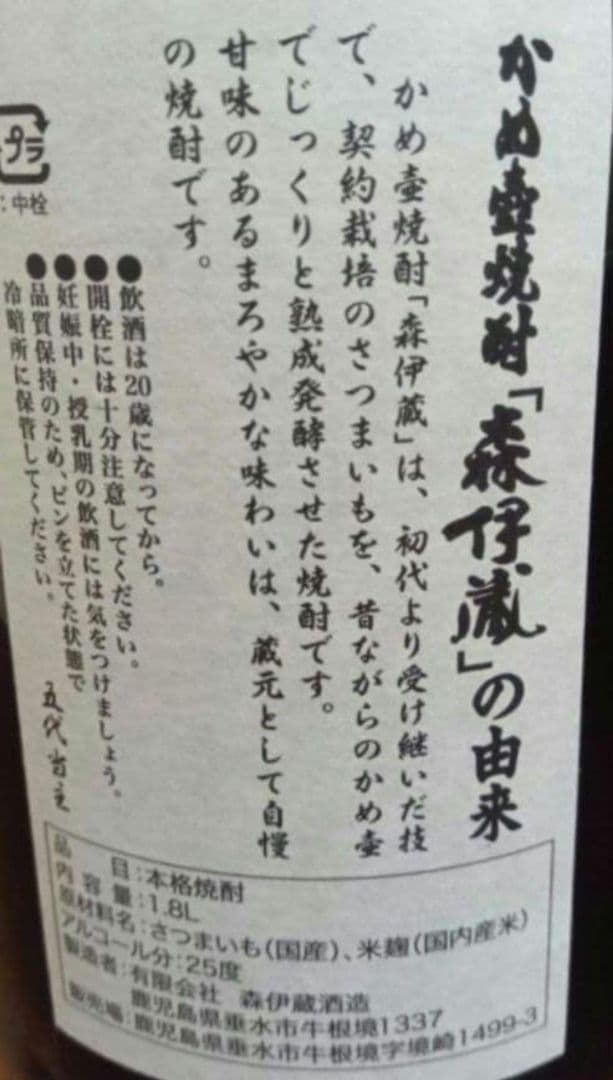 かめ壺焼酎「森伊蔵」の由来
かめ壺焼酎「森伊蔵」は、初代より受け継いだ技
で、契約栽培のさつまいもを、昔ながらのかめ壺
でじっくりと熟成発酵させた焼酎です。
甘味のあるまろやかな味わいは、蔵元として自慢
の焼酎です。
●飲酒は20歳になってから。
●開栓には十分注意してください。
●妊娠中・授乳期の飲酒には気をつけましょう。
●品質保持のため、ビンを立てた状態で
冷暗所に保管してください。
五代当主
プラ
：中栓
品目：本格焼酎
内容量：1.8L
原材料名：さつまいも（国産）、米麹（国内産米）
アルコール分：25度
製造者：有限会社 森伊蔵酒造
鹿児島県垂水市牛根境1337
販売場：鹿児島県垂水市牛根境字境崎1499-3